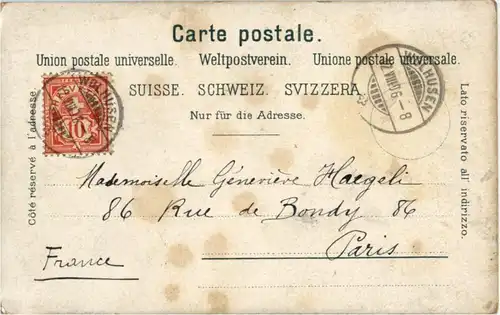 Carte postale.
Union postale universelle. Weltpostverein. Unione postale universale.
SUISSE. SCHWEIZ. SVIZZERA.
Nur für die Adresse.
Côté réservé à l'adresse.
Lato riservato all' indirizzo.
WOLHUSEN
10
WOLHUSEN
Mademoiselle Géneviève Haegeli
86 Rue de Bondy 86
Paris
France